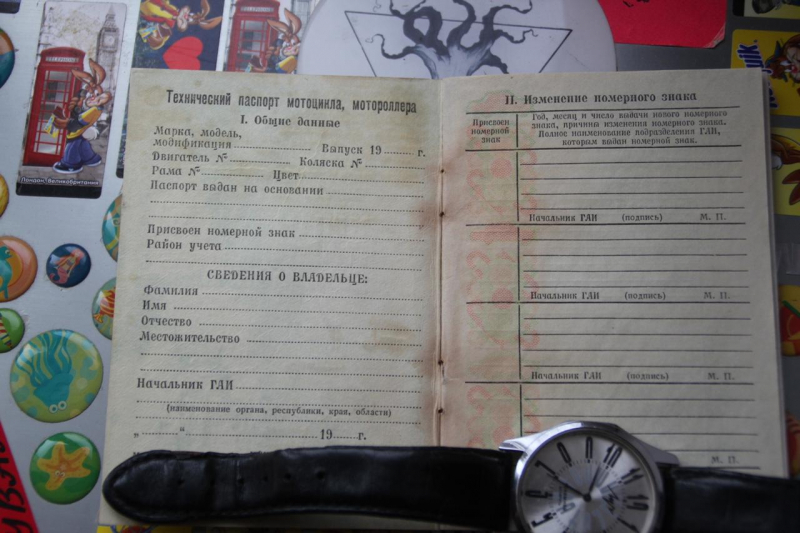 TELEPHONE
Лондон, Великобритания
Технический паспорт мотоцикла, мотороллера
I. Общие данные
Марка, модель,
модификация Выпуск 19 г.
Двигатель № Коляска №
Рама № Цвет
Паспорт выдан на основании
Присвоен номерной знак
Район учета
СВЕДЕНИЯ О ВЛАДЕЛЬЦЕ:
Фамилия
Имя
Отчество
Местожительство
Начальник ГАИ
(наименование органа, республики, края, области)
„ “ 19 г.
II. Изменение номерного знака
Присвоен
номерной
знак
Год, месяц и число выдачи нового номерного
знака, причина изменения номерного знака.
Полное наименование подразделения ГАИ,
которым выдан номерной знак.
Начальник ГАИ (подпись) М. П.
Начальник ГАИ (подпись) М. П.
Начальник ГАИ (подпись) М. П.
М. П.